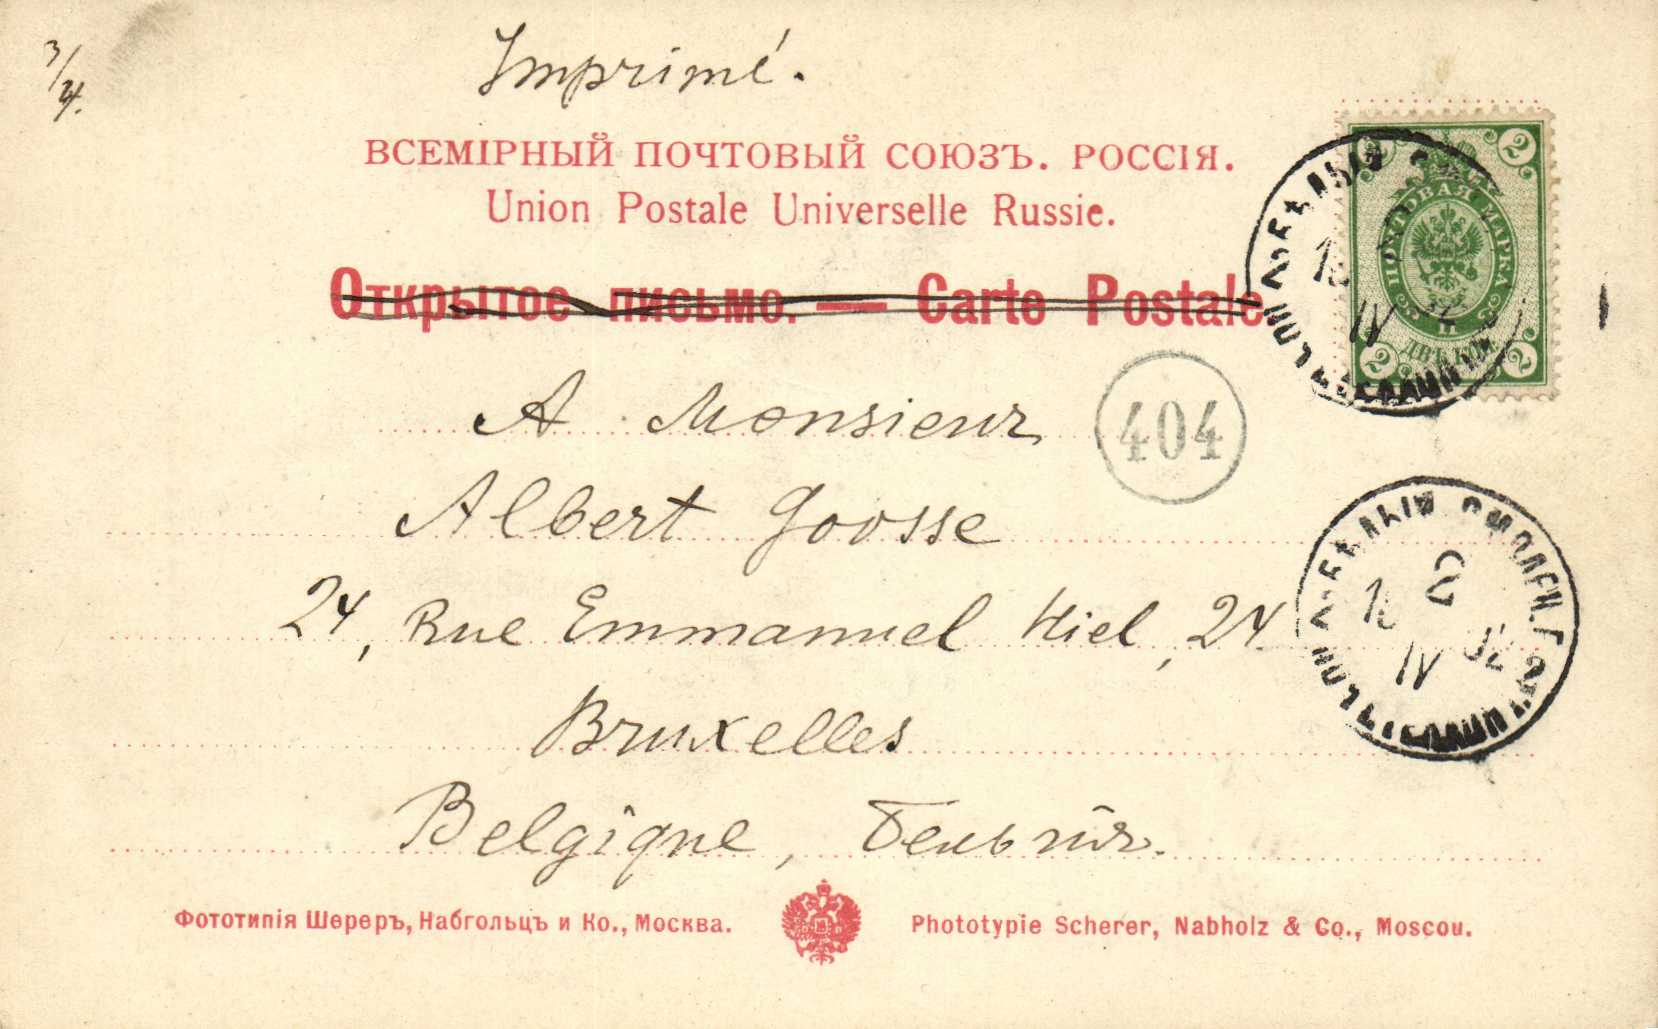 3/4.
Imprimé.
ВСЕМІРНЫЙ ПОЧТОВЫЙ СОЮЗЪ. РОССІЯ.
Union Postale Universelle Russie.
Открытое письмо. — Carte Postale
2 2
ПОЧТОВАЯ МАРКА
2 2
IV
404
A Monsieur
Albert Goosse
24, Rue Emmanuel Hiel, 24
Bruxelles
Belgique, Бельгія.
БѢЛЫЙ СМОЛЕН. Г.
2
IV 02
Фототипія Шереръ, Набгольцъ и Ко., Москва.
Phototypie Scherer, Nabholz & Co., Moscou.